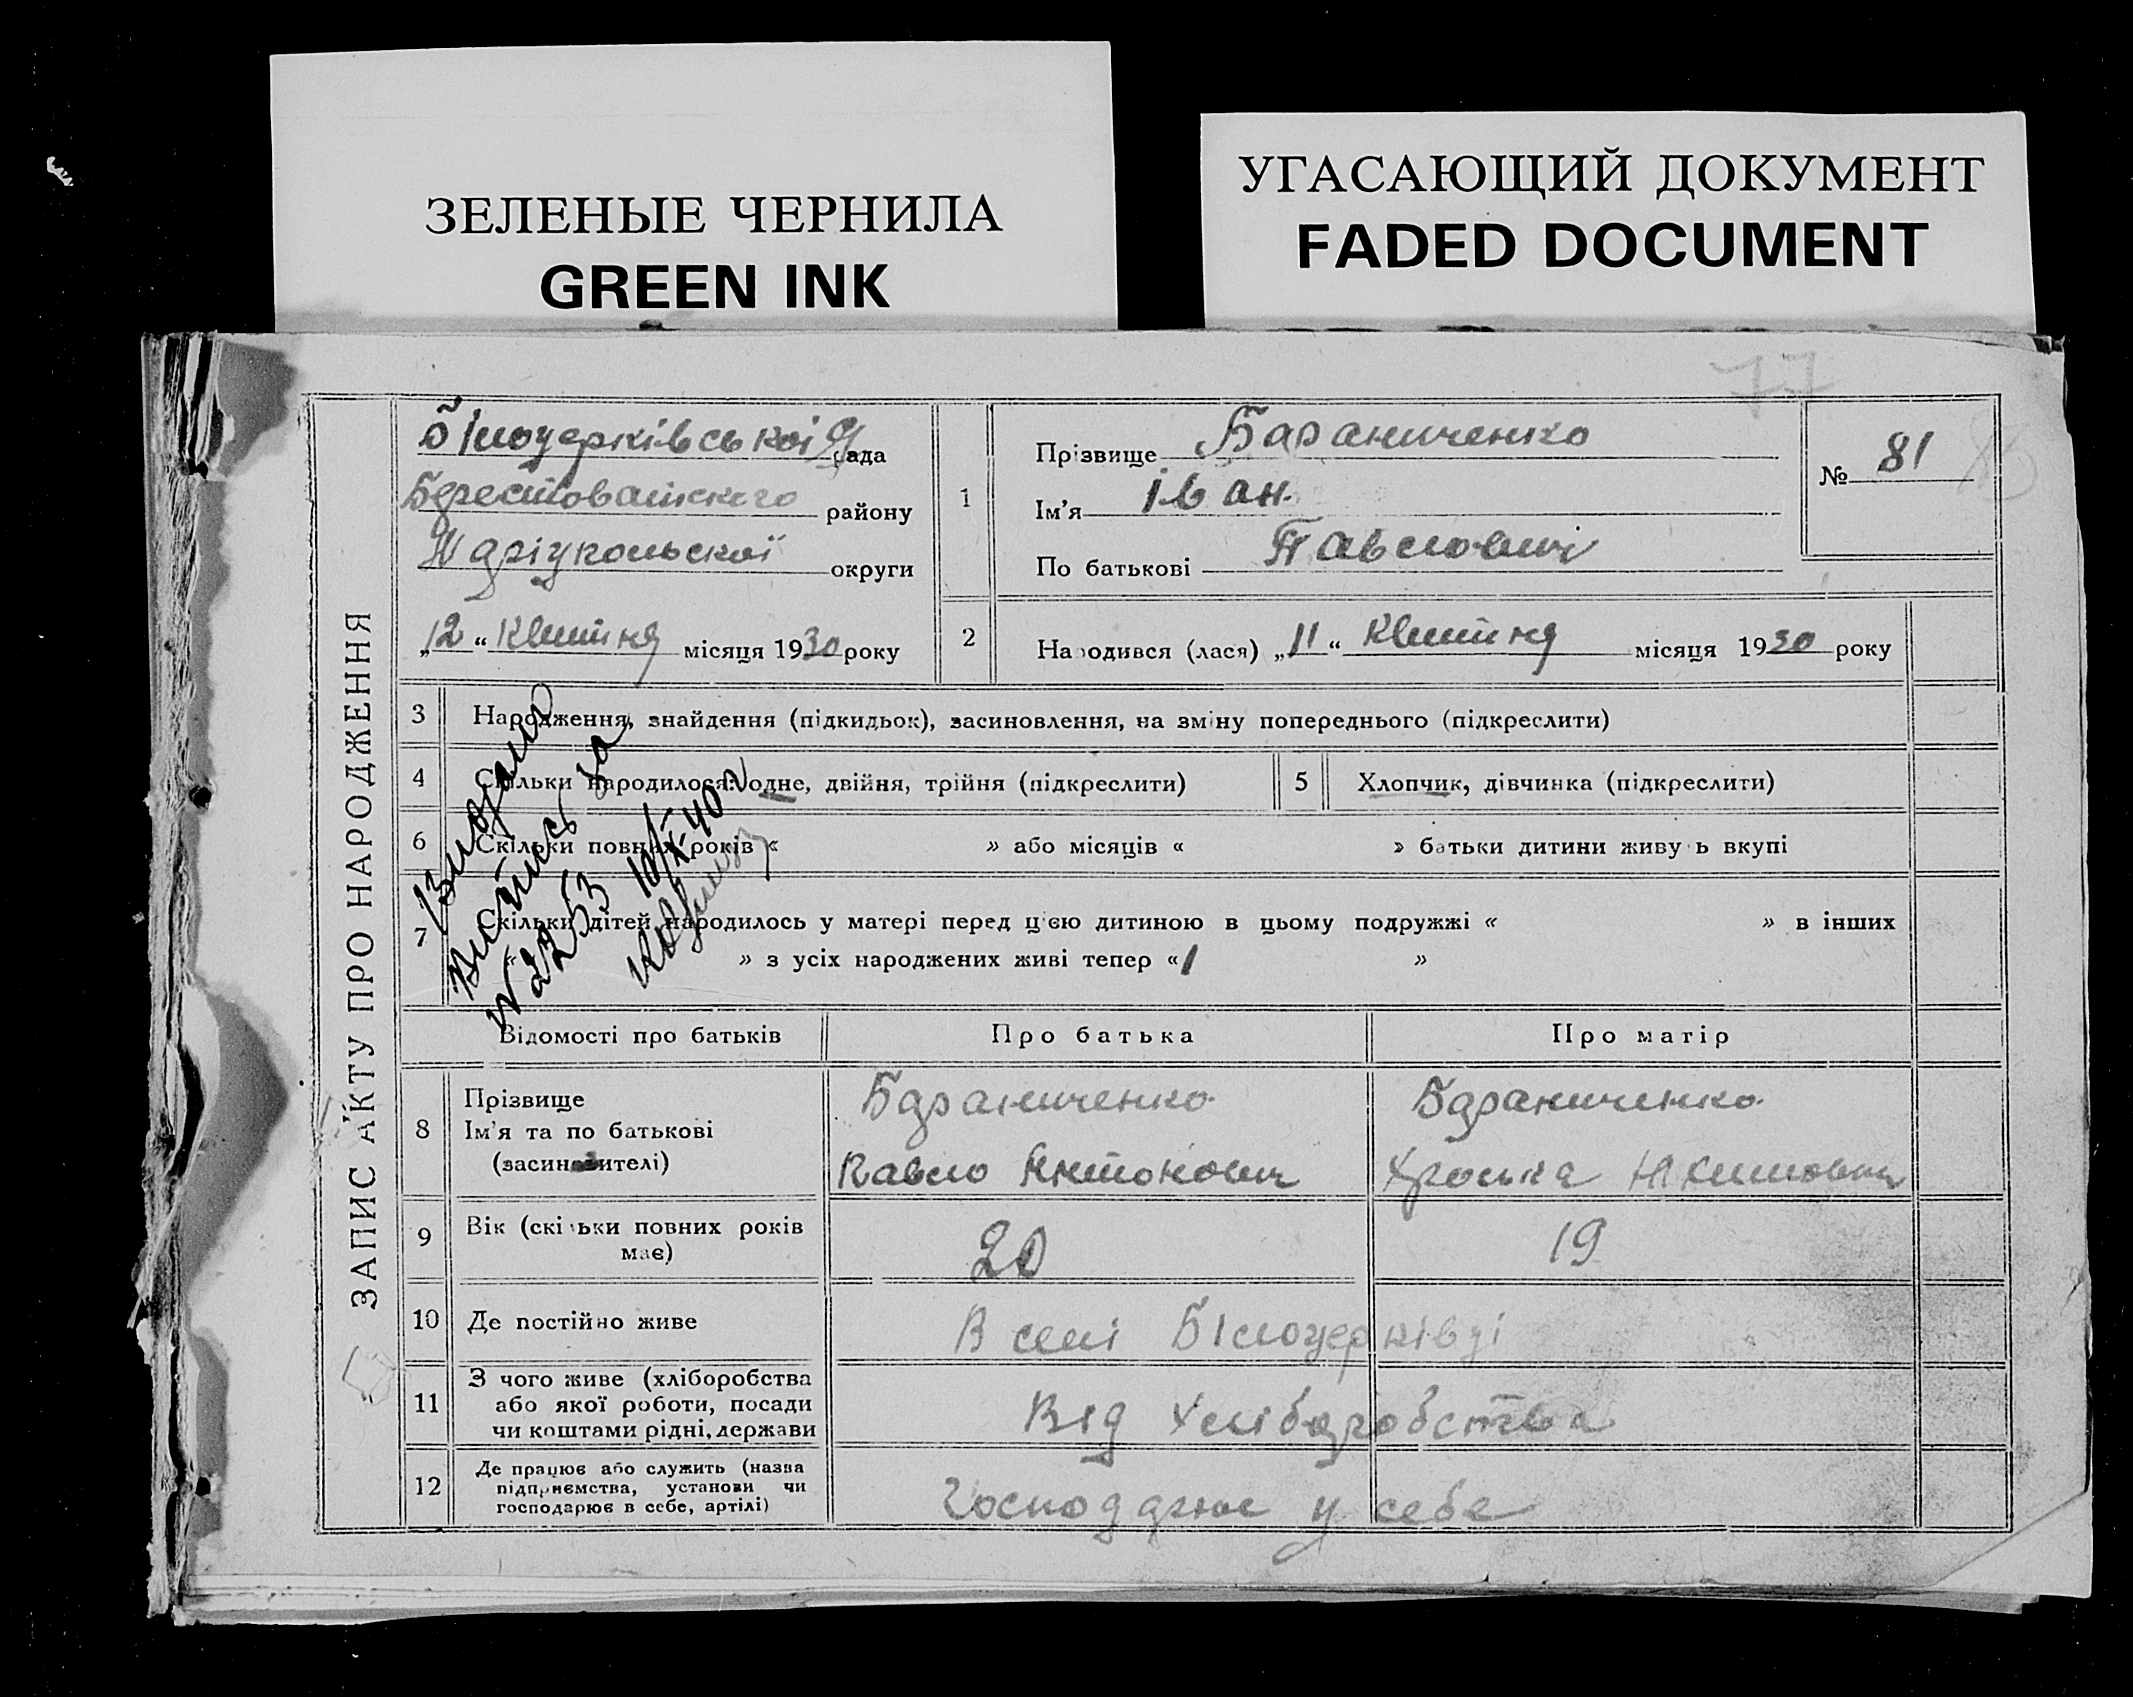 ЗЕЛЕНЫЕ ЧЕРНИЛА
GREEN INK
УГАСАЮЩИЙ ДОКУМЕНТ
FADED DOCUMENT
77
ЗАПИС АКТУ ПРО НАРОДЖЕННЯ
Білоцерківської рада
Берестоватского району
Маріупольської округи
„12“ Квитня місяця 1930 року
1
Прізвище Бараниченко
Ім’я Іван
По батькові Павлович
№ 81
2
Народився (лася) „11“ Квитня місяця 1930 року
3 Народження, знайдення (підкидьок), засиновлення, на зміну попереднього (підкреслити)
4 Скільки народилося: одне, двійня, трійня (підкреслити)
5 Хлопчик, дівчинка (підкреслити)
6 Скільки повних років « » або місяців « » батьки дитини живуть вкупі
7 Скільки дітей народилось у матері перед цією дитиною в цьому подружжі « » в інших
« » з усіх народжених живі тепер «1 »
№ 2253 10/X-40
Відомості про батьків
Про батька
Про матір
8 Прізвище
Ім’я та по батькові
(засиновителі)
Бараниченко
Павло Антонович
Бараниченко
9 Вік (скільки повних років
має)
20
19
10 Де постійно живе
В селі Білоцерківці
11 З чого живе (хліборобства
або якої роботи, посади
чи коштами рідні, держави
Від хліборобства
12 Де працює або служить (назва
підприємства, установи чи
господарює в себе, артілі)
Господарює у себе